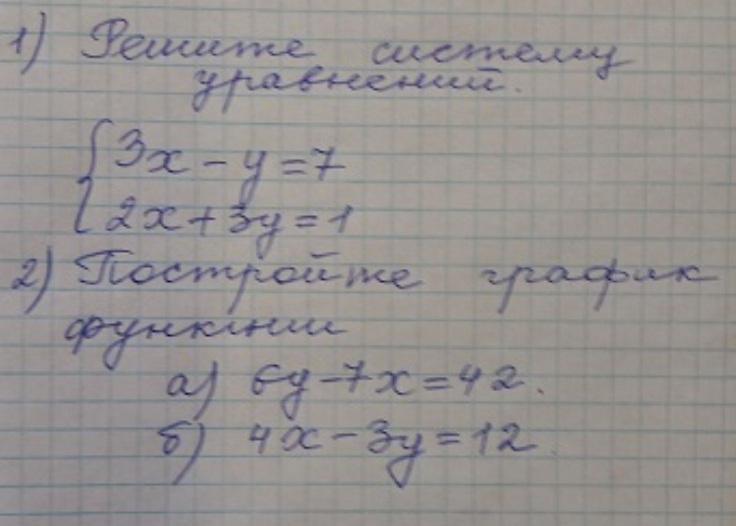 1) Решите систему
уравнений.
{3x - y = 7
{2x + 3y = 1
2) Постройте график
функции
а) 6y - 7x = 42.
б) 4x - 3y = 12